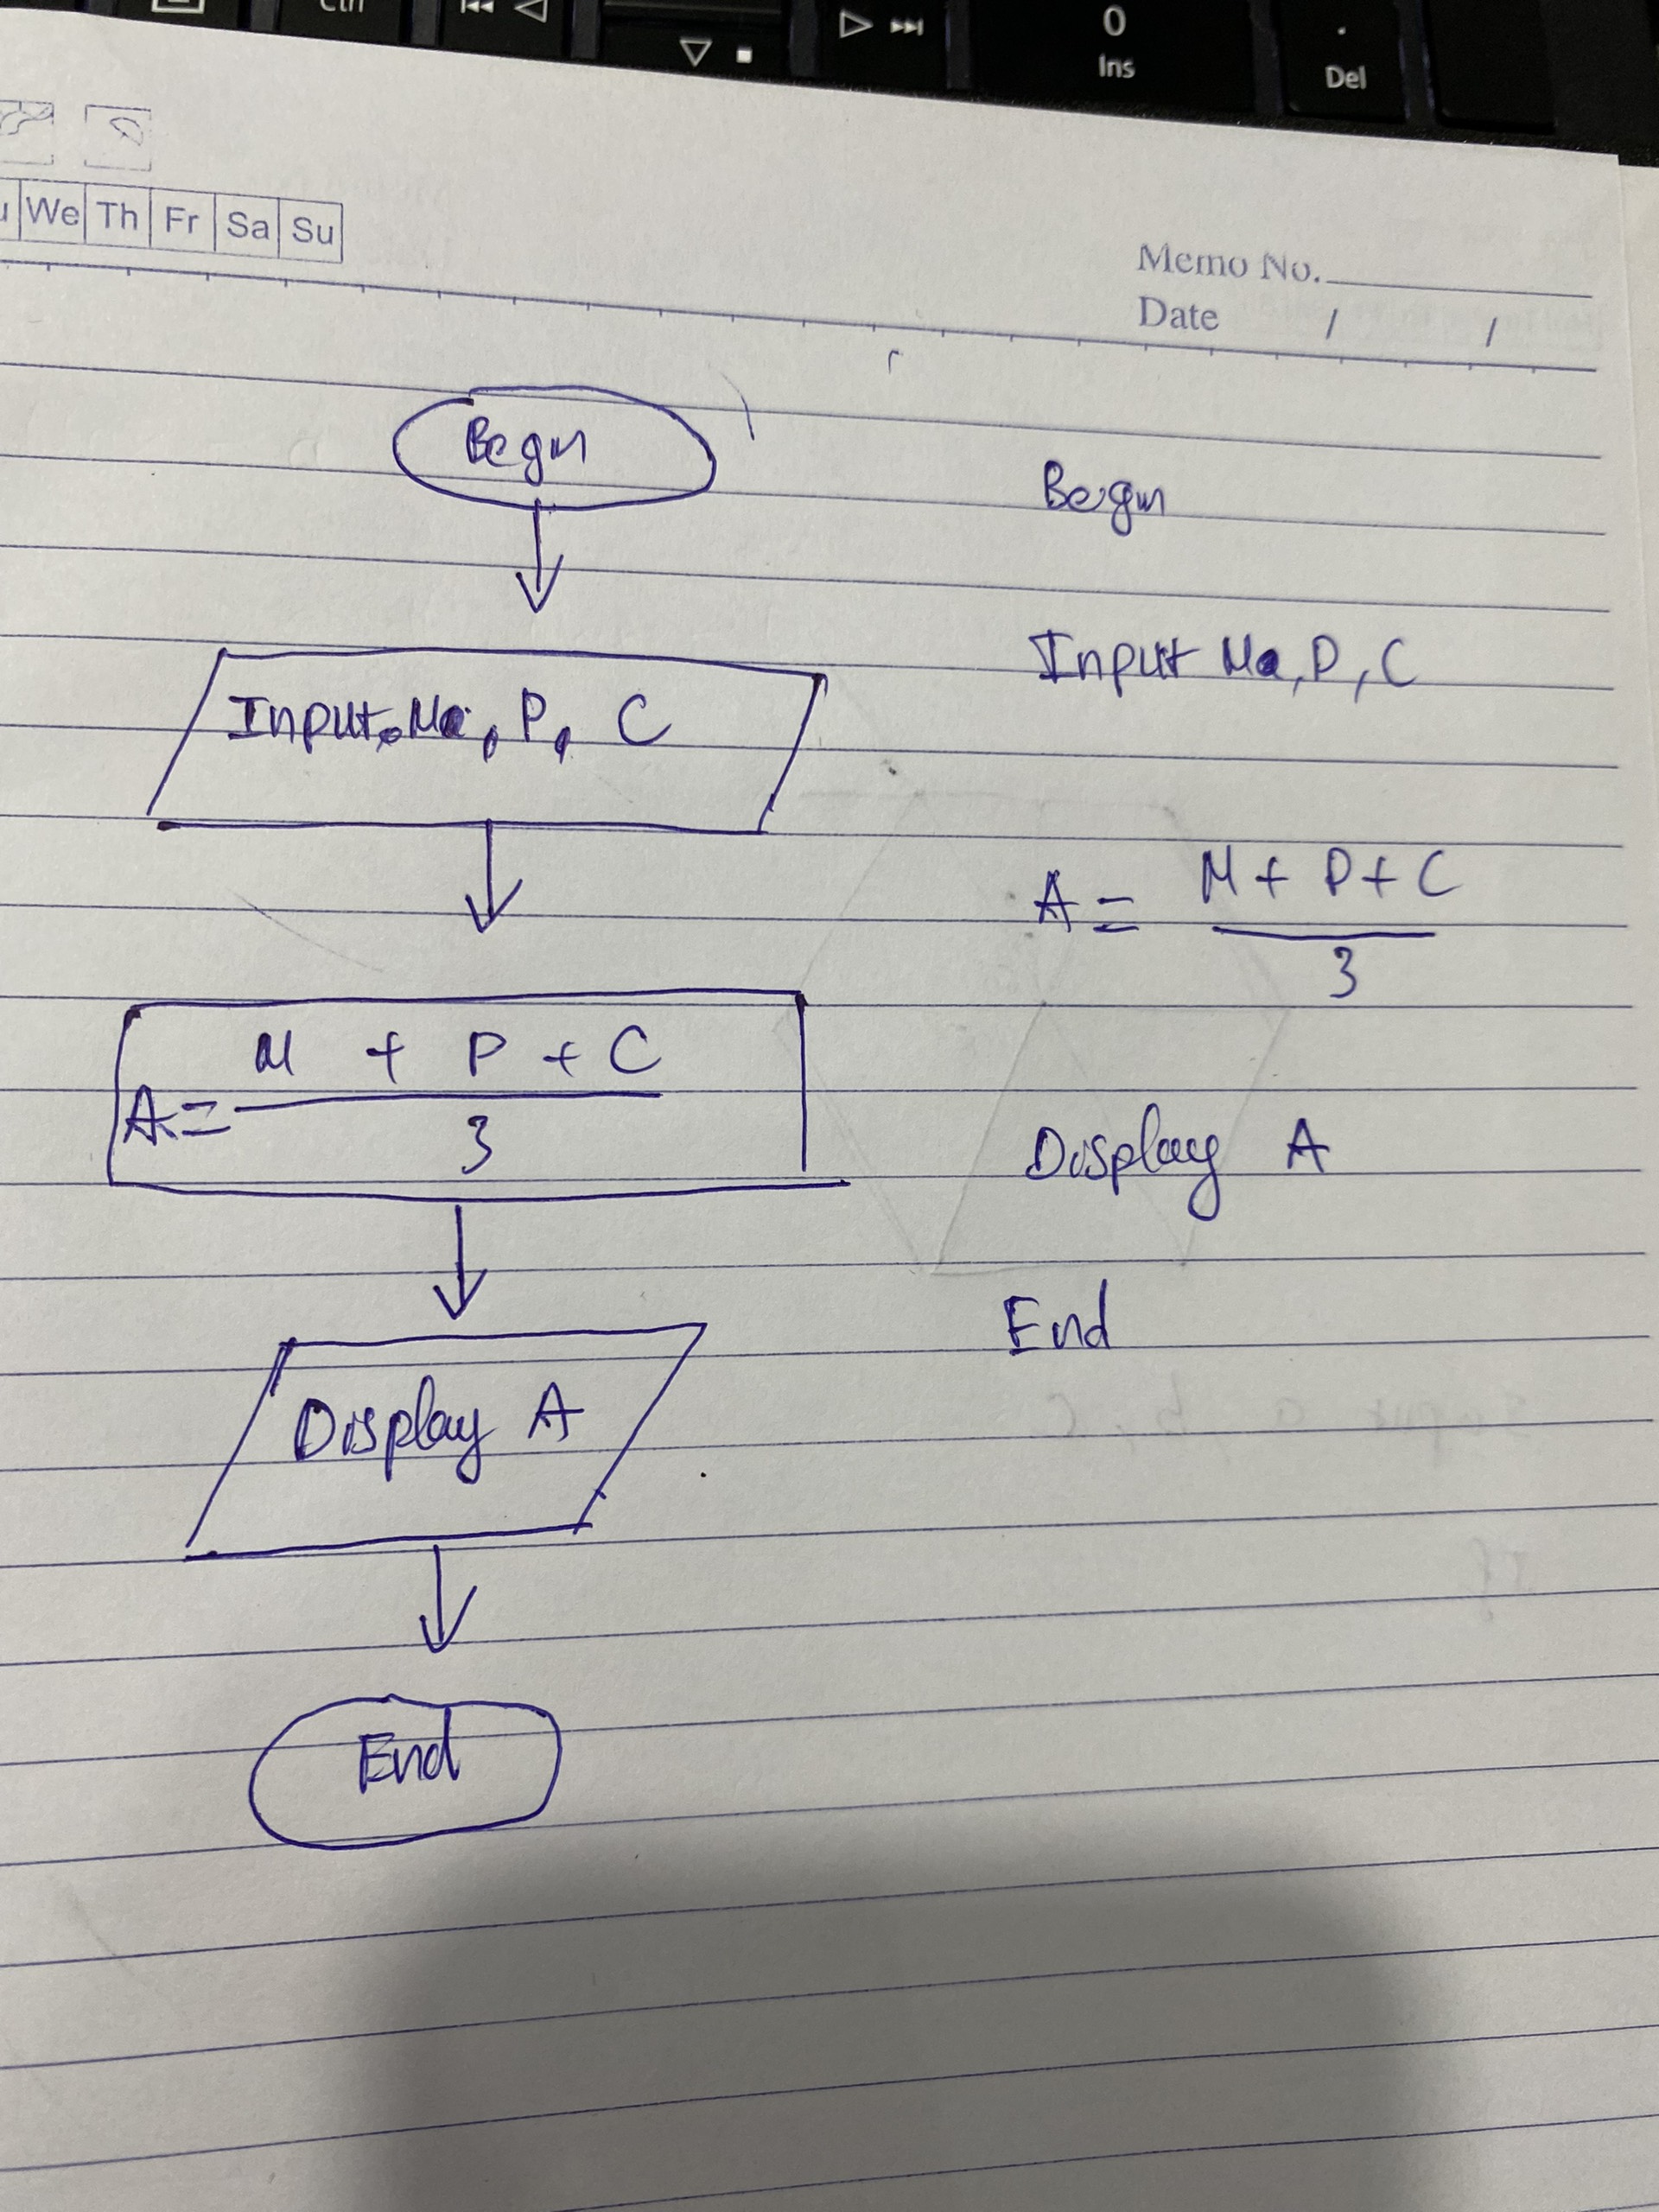 Ctrl
0
Ins
.
Del
We Th Fr Sa Su
Memo No.
Date / /
Begin
Input Ma, P, C
A = M + P + C
3
Display A
End
Begin
Input Ma, P, C
A = M + P + C
3
Display A
End